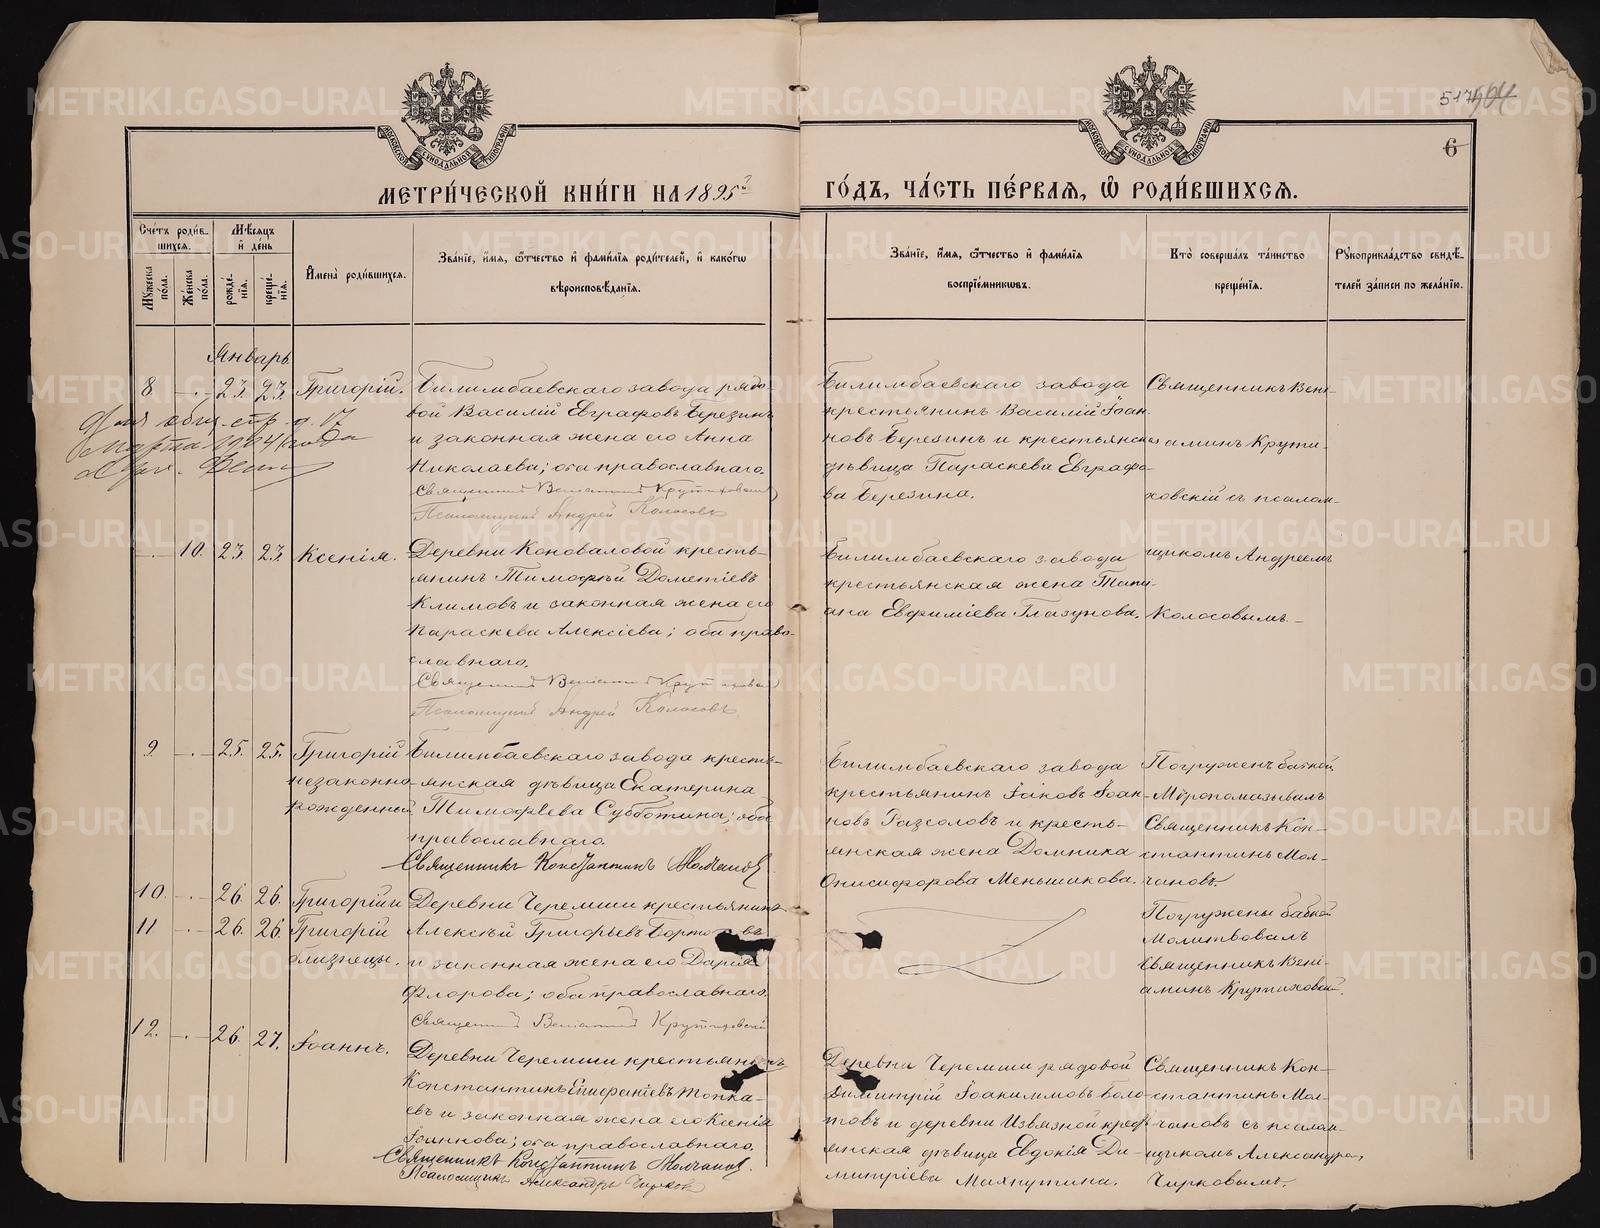 517 504
6
МОСКОВСКОЙ СѴНОДАЛЬНОЙ ТИПОГРАФІИ
МОСКОВСКОЙ СѴНОДАЛЬНОЙ ТИПОГРАФІИ
МЕТРИ́ЧЕСКОЙ КНИ́ГИ НА 1895й
ГО́ДЪ, ЧА́СТЬ ПЕ́РВАЯ, Ѽ РОДИ́ВШИХСЯ.
Сче́тъ роди́вшихся.
Мѣ́сяцъ и҆ де́нь
Мꙋ́жеска по́ла.
Же́нска по́ла.
рожде́нїѧ.
креще́нїѧ.
И҆мена̀ роди́вшихся.
Зва́нїе, и҆́мѧ, ѻ҆́тчество и҆ фами́лїѧ роди́телей, и҆ како́гѡ
вѣроисповѣ́данїѧ.
Зва́нїе, и҆́мѧ, ѻ҆́тчество и҆ фами́лїѧ
воспрїе́мникѡвъ.
Кто̀ соверша́лъ та́инство
креще́нїѧ.
Рꙋкоприкла́дство свидѣ́-
телей за́писи по жела́нїю.
Январь
8 - 23. 23. Григорій.
Билимбаевскаго завода рядо-
вой Василій Евграфовъ Березинъ
и законная жена его Анна
Николаева; оба православнаго.
Священникъ Веніаминъ Крутиховскій
Псаломщикъ Андрей Колосовъ
Билимбаевскаго завода
крестьянинъ Василій Іоан-
новъ Березинъ и крестьянская
дѣвица Параскева Евграфо-
ва Березина.
Священникъ Вені-
аминъ Крути-
ховскій съ псалом-
щикомъ Андреемъ
Колосовымъ.
марта 1904 года
- 10. 23. 23. Ксенія.
Деревни Коноваловой кресть-
янинъ Тимофей Дометіевъ
Климовъ и законная жена его
Параскева Алексіева; оба право-
славнаго.
Священникъ Веніаминъ Крутиховскій
Псаломщикъ Андрей Колосовъ
Билимбаевскаго завода
крестьянская жена Тати-
ана Евфиміева Глазунова.
9 - 25. 25. Григорій
незаконно-
рожденный
Билимбаевскаго завода кресть-
янская дѣвица Екатерина
Тимофѣева Субботина; оба
православнаго.
Священникъ Константинъ Молчановъ
Билимбаевскаго завода
крестьянинъ Іаковъ Іоан-
новъ Разсоловъ и кресть-
янская жена Домника
Онисифорова Меньшикова.
Погруженъ бабкой
Мѵропомазывалъ
Священникъ Кон-
стантинъ Мол-
чановъ.
10. - 26. 26. Григорій и
11 - 26. 26. Григорій
близнецы.
Деревни Черемши крестьянинъ
Алексѣй Григорьевъ
и законная жена его Дарія
Флорова; оба православнаго.
Священникъ Веніаминъ Крутиховскій
Погружены бабкой
Молитвовалъ
Священникъ Вені-
аминъ Крутиховскій.
12. - 26. 27. Іоаннъ.
Деревни Черемши крестьянинъ
Константинъ Епифаніевъ Топка-
евъ и законная жена его Ксенія
Іоаннова; оба православнаго.
Священникъ Константинъ Молчановъ.
Псаломщикъ Александръ Чирковъ
Деревни Черемши рядовой
Димитрій Іоакимовъ Боло-
товъ и деревни Извязной кресть-
янская дѣвица Евдокія Ди-
митріева Махнутина.
Священникъ Кон-
стантинъ Мол-
чановъ съ псалом-
щикомъ Александромъ
Чирковымъ.
METRIKI.GASO-URAL.RU